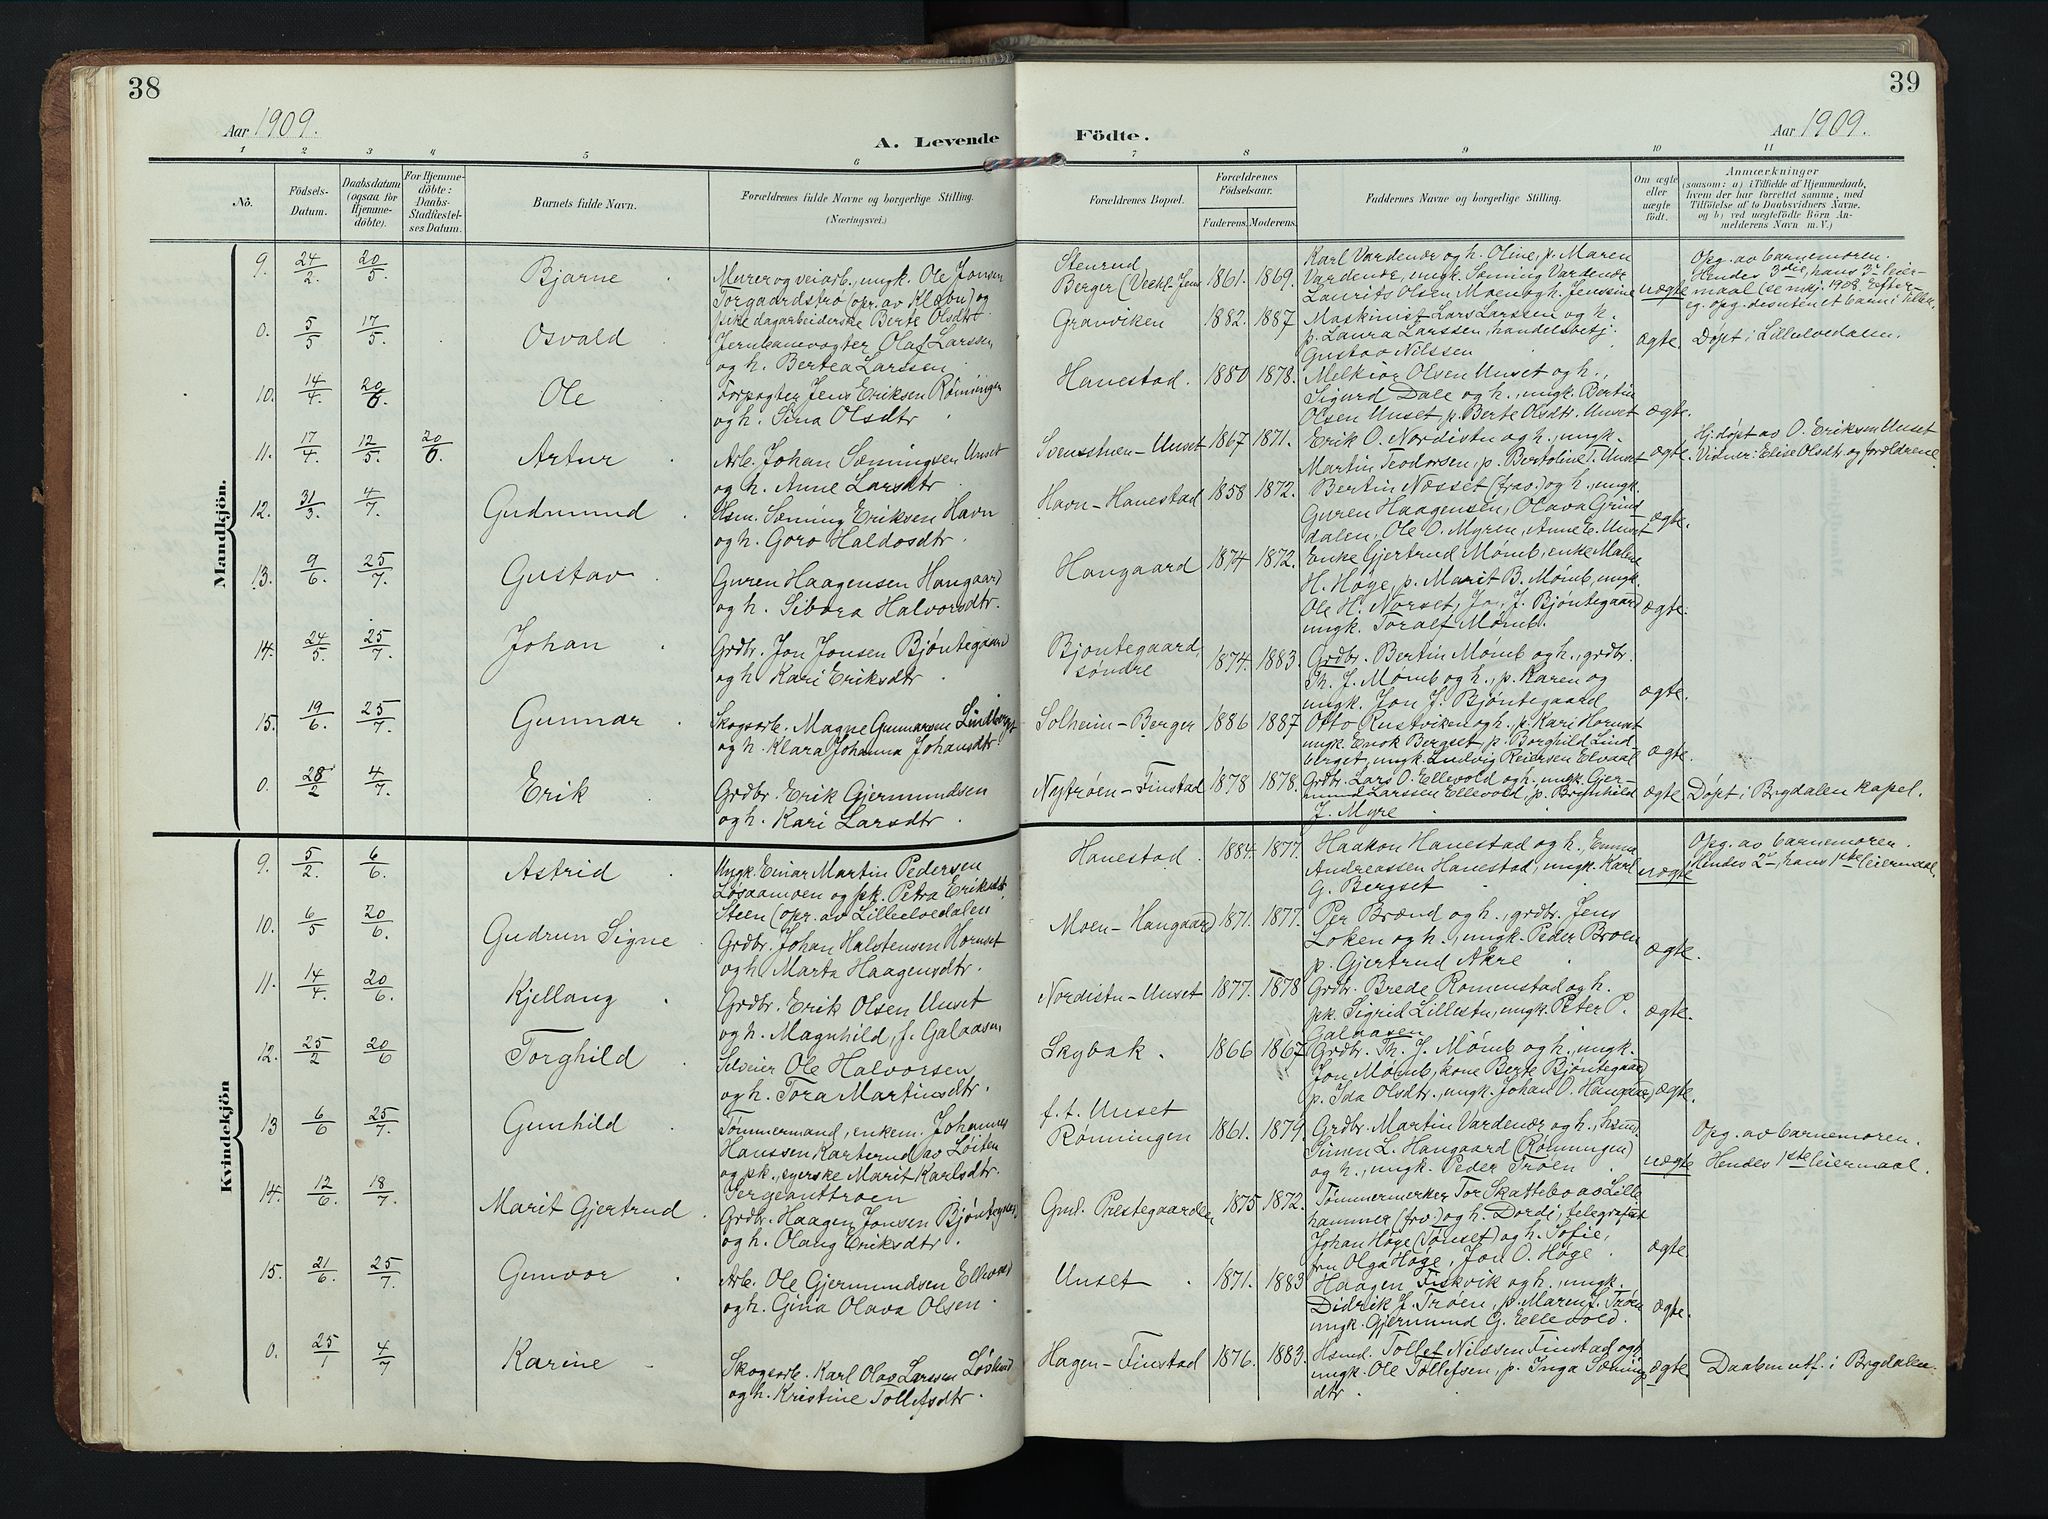 38
Aar 1909.
A. Levende
1 2 3 4 5 6
Nô.
Födsels-Datum.
Daabsdatum (ogsaa for Hjemmedöbte).
For Hjemmedöbte: Daabs-Stadfæstelses Datum.
Barnets fulde Navn.
Forældrenes fulde Navne og borgerlige Stilling.
(Næringsvei.)
Mandkjön.
9. 24/2. 20/5. Bjarne
Murer og veiarb., ungk. Ole Jonsen
Torgaardstrø (opr. av Klæbu) og
pike dagarbeiderske Berte Olsdtr.
0. 5/5 17/5. Osvald
Jernbanevogter Olaf Larssen
og h. Bertea Larssen
10. 14/4. 20/6 Ole
Forpagter Jens Eriksen Rønningen
og h. Sina Olsdtr
11. 17/4. 12/5. 20/6. Artur
Arb. Johan Sæmingsen Unset
og h. Anne Larsdtr
12. 31/3. 4/7 Gudmund
Hsm. Sæming Eriksen Havn
og h. Goro Haldosdtr.
13. 9/6. 25/7. Gustav
Guren Haagensen Hangaard
og h. Sibora Halvorsdtr.
14. 24/5. 25/7. Johan
Grdbr. Jon Jonsen Bjøntegaard
og h. Kari Eriksdtr
15. 19/6. 25/7. Gunnar
Skogsarb. Magne Gunnarsen Lindberget
og h. Klara Johanna Johansdtr.
0. 28/2 4/7. Erik
Grdbr. Erik Gjermundsen
og h. Kari Larsdtr
Kvindekjön
9. 5/2. 6/6. Astrid
Ungk. Einar Martin Pedersen
Løsaamoen og pk. Petra Eriksdtr.
Steen (opr. av Lilleelvedalen
10. 6/5 20/6. Gudrun Signe
Grdbr. Johan Halstensen Hornset
og h Marta Haagensdtr.
11. 14/4. 20/6. Kjellaug
Grdbr. Erik Olsen Unset
og h. Magnhild, f. Galaasen
12. 25/2 20/6 Torghild
Selveier Ole Halvorsen
og h. Tora Martinsdtr.
13 6/6 25/7. Gunhild
Tømmermand, enkem. Johannes
Hanssen Karterud av Løiten
og pk., syerske Marit Karlsdtr.
Sergeanttrøen
14. 12/6. 18/7. Marit Gjertrud
Grdbr. Haagen Jonsen Bjøntegaard
og h. Olaug Eriksdtr.
15. 21/6. 25/7. Gunvor
Arb. Ole Gjermundsen Elvaal
og h. Gina Olava Olsen
0. 25/1 4/7 Karine
Skogsarb. Karl Olav Larssen Løslund
og h. Kristine Tollefsdtr.
39
Födte.
Aar 1909.
7 8 9 10 11
Forældrenes Bopæl.
Forældrenes Födselsaar.
Faderens. Moderens.
Faddernes Navne og borgerlige Stilling.
Om ægte eller uægte födt.
Anmærkninger
(saasom: a) i Tilfælde af Hjemmedaab,
hvem der har forrettet samme, med
Tilföielse af to Daabsvidners Navne.
og b) ved uægtefödte Börn Anmelderens Navn m. V.)
Stenrud
Berger (Vestl. Jens 1861. 1869.
Karl Vardenær og h. Oline, p. Maren
Vardenær, ungk. Sæming Vardenær
Laurits Olsen Moen og h. Jenssine
uægte
Opg. av barnemoren.
Hendes 3die, hans 3' leiermaal (se mkj. 1908. Eftereg. opg. desuten et barn i Tillda.
Grauviken 1882. 1887
Maskinist Lars Larssen og h.
p. Laura Larssen, handelsbetj.
Gustav Nilssen
ægte Døpt i Lilleelvedalen.
Hanestad. 1880 1878.
Melkior Olsen Unset og h.,
Sigurd Dale og h., ungk. Bertin
Olsen Unset, p. Berte Olsdtr. Unset
ægte.
Svensstuen-Unset 1867 1871.
Erik O. Nordistu og h., ungk.
Martin Teodorsen, p. Bertoline T. Unset
ægte.
Hj. døpt av O. Eriksen Unset
Vidner: Elise Olsdtr. og forældrene.
Havn-Hanestad 1858 1872.
Bertin Næsset (frav.) og h., ungk.
Guren Haagensen, Olava Grindsdalen, Ole O. Myren, Anne E. Unset
ægte.
Hangaard 1874 1872.
Enke Gjertrud Mømb, enke Malene
H. Høge, p. Marit B. Mømb, ungk.
Ole H. Norset, Jo. J. Bjøntegaard
ungk. Toralf Mømb.
ægte.
Bjøntegaard,
søndre 1874. 1883.
Grdbr. Bertin Mømb og h., grdbr.
Th. J. Mømb og h., p. Karen og
ungk. Jon J. Bjøntegaard
ægte.
Solheim-Berger 1886 1887
Otto Rustviken og h., p. Kari Hornset
ungk. Enok Bergset, p. Borghild Lindberget, ungk. Ludvig Reiersen Elvaal
ægte.
Nytrøen-Finstad 1878 1878.
Grdbr. Lars O. Ellevold og h., ungk. Gjermund Larssen Ellevold, p. Brynhild
J. Myre
ægte Døpt i Brydalen kapel.
Hanestad. 1884. 1877.
Haakon Hanestad og h., Emma
Andreassen Hanestad, ungk. Karl
G. Bergset
uægte
Opg. av barnemoren.
Hendes 2', hans 1ste leiermaal.
Moen-Hangaard 1871. 1877.
Per Brænd og h., grdbr. Jens
Løken og h., ungk. Peder Broen
p. Gjertrud Akre
ægte.
Nordistu-Unset 1877. 1878
Grdbr. Brede Romenstad og h.
pk. Sigrid Lillestu, ungk. Peter P.
Galaasen
ægte.
Skybak. 1866 1867
Grdbr. Th. J. Mømb og h., ungk.
Jon Mømb, kone Berte Bjøntegaard
p. Ida Olsdtr., ungk. Johan O. Hangaard
ægte.
f. t. Unset
Rønningen 1861. 1879.
Grdbr. Martin Vardenær og h., hsmd.
Simen L. Hangaard (Rønningen)
og h., ungk. Peder Trøen
uægte
Opg. av barnemoren.
Hendes 1ste leiermaal.
Gmd. Prestegaarden 1875 1872.
Tømmermerker Tor Skattebo av Lillehammer (frv.) og h. Dordi, telegrafist
Johan Høge (Tønset) og h. Sofie,
frn Olga Høge, Jon O. Høge
ægte.
Unset 1871. 1883
Haagen Fiskvik og h., ungk.
Didrik J. Trøen, p. Maren J. Trøen
ungk. Gjermund G. Ellevold.
ægte.
Hagen-Finstad 1876. 1883.
Hsmd. Tollef Nilssen Finstad og h.
ungk. Ole Tollefsen, p. Inga Sæmingsdtr.
ægte Daaben utf. i Brydalen.